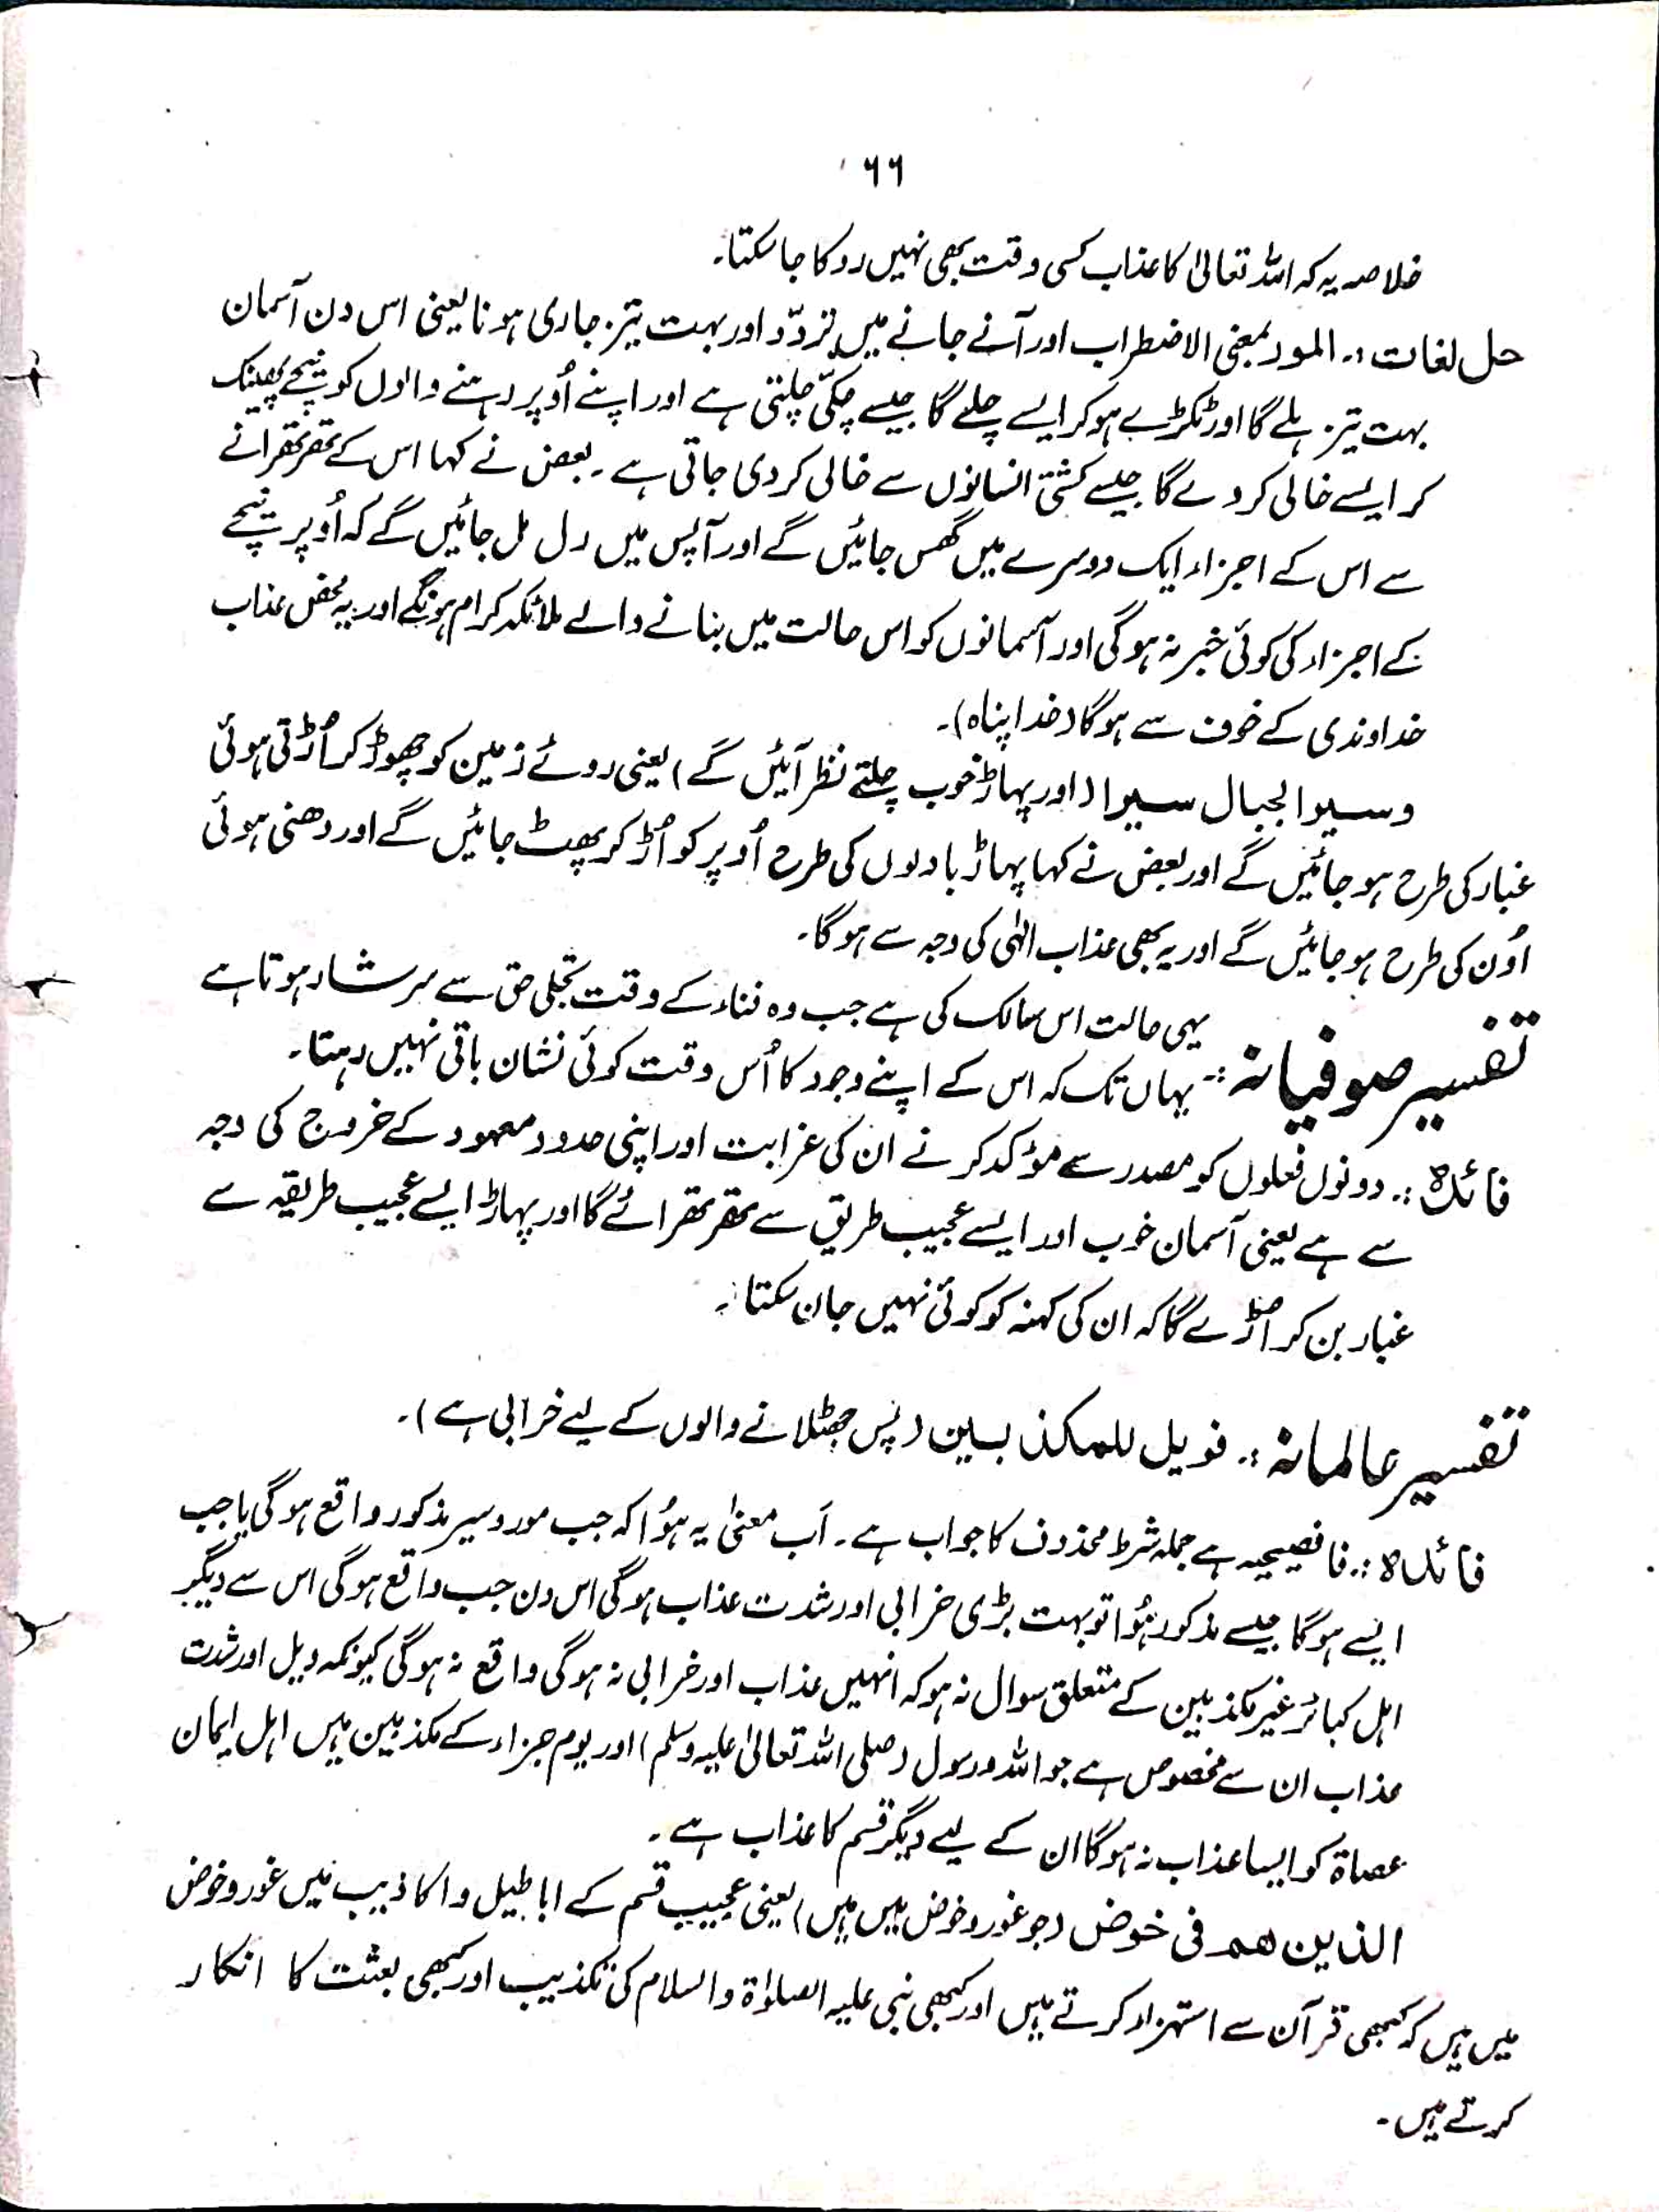 ۶۶
خلاصہ یہ کہ اللہ تعالیٰ کا عذاب کسی وقت بھی نہیں روکا جا سکتا۔
حل لغات :۔ المور بمعنی الاضطراب اور آنے جانے میں تردّد اور بہت تیز جاری ہونا یعنی اس دن آسمان
بہت تیز ہلے گا اور ٹکڑے ہو کر ایسے چلے گا جیسے چکّی چلتی ہے اور اپنے اُوپر رہنے والوں کو نیچے پھینک
کر ایسے خالی کر دے گا جیسے کشتی انسانوں سے خالی کر دی جاتی ہے ۔ بعض نے کہا اس کے تھرتھرانے
سے اس کے اجزاء ایک دوسرے میں گھس جائیں گے اور آپس میں رل مل جائیں گے کہ اُوپر نیچے
کے اجزاء کی کوئی خبر نہ ہوگی اور آسمانوں کو اس حالت میں بنانے والے ملائکہ کرام ہونگے اور یہ محض عذاب
خداوندی کے خوف سے ہوگا (خدا پناہ)۔
وسیرا لجبال سیرا (اور پہاڑ خوب چلتے نظر آئیں گے) یعنی روئے زمین کو چھوڑ کر اُڑتی ہوئی
غبار کی طرح ہو جائیں گے اور بعض نے کہا پہاڑ بادلوں کی طرح اُوپر کو اُڑ کر پھٹ جائیں گے اور دھنی ہوئی
اُون کی طرح ہو جائیں گے اور یہ بھی عذاب الٰہی کی وجہ سے ہوگا۔
یہی حالت اس سالک کی ہے جب وہ فناء کے وقت تجلی حق سے سرشار ہوتا ہے
تفسیر صوفیانہ :۔ یہاں تک کہ اس کے اپنے وجود کا اُس وقت کوئی نشان باقی نہیں رہتا۔
فائدہ :۔ دونوں فعلوں کو مصدر سے مؤکد کرنے ان کی غرابت اور اپنی حدود معہود کے خروج کی وجہ
سے ہے یعنی آسمان خوب اور ایسے عجیب طریق سے تھرتھرائے گا اور پہاڑ ایسے عجیب طریقہ سے
غبار بن کر اُڑے گا کہ ان کی کہنہ کو کوئی نہیں جان سکتا۔
تفسیر عالمانہ :۔ فویل للمکذبین (پس جھٹلانے والوں کے لیے خرابی ہے)۔
فائدہ :۔ فا فصیحیہ ہے جملہ شرط محذوف کا جواب ہے ۔ اَب معنیٰ یہ ہُوا کہ جب مور و سیر مذکور واقع ہوگی یا جب
ایسے ہوگا جیسے مذکور ہُوا تو بہت بڑی خرابی اور شدت عذاب ہوگی اس دن جب واقع ہوگی اس سے دیگر
اہل کبائر غیر مکذبین کے متعلق سوال نہ ہو کہ انہیں عذاب اور خرابی نہ ہوگی واقع نہ ہوگی کیونکہ ویل اور شدت
عذاب ان سے مخصوص ہے جو اللہ و رسول (صلی اللہ تعالیٰ علیہ وسلم) اور یوم جزاء کے مکذبین ہیں اہل ایمان
عصاۃ کو ایسا عذاب نہ ہوگا ان کے لیے دیگر قسم کا عذاب ہے ۔
الذین ھم فی خوض (جو غور و خوض میں ہیں) یعنی عجیب قسم کے اباطیل و اکاذیب میں غور و خوض
میں ہیں کہ کبھی قرآن سے استہزاء کرتے ہیں اور کبھی نبی علیہ الصلوٰۃ والسلام کی تکذیب اور کبھی بعثت کا انکار
کرتے ہیں ۔